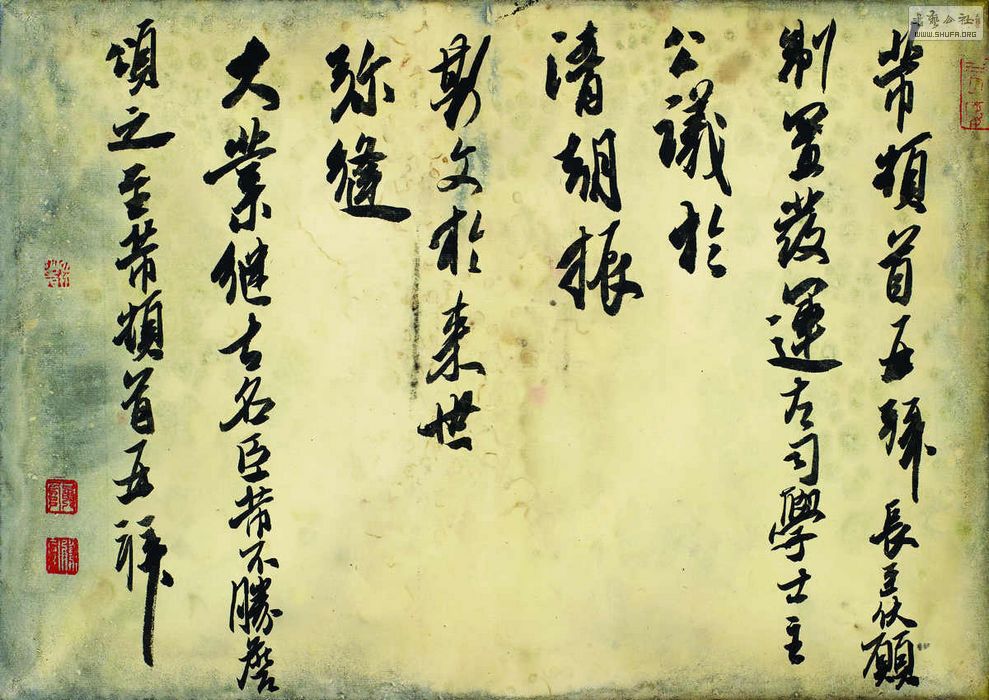 芾頓首再拜長至伏願
制置發運左司學士主
公議於
清朝振
斯文於来世
弥縫
大業继古名臣芾不勝詹
頌之至芾頓首再拜
書藝公社
WWW.SHUFA.ORG